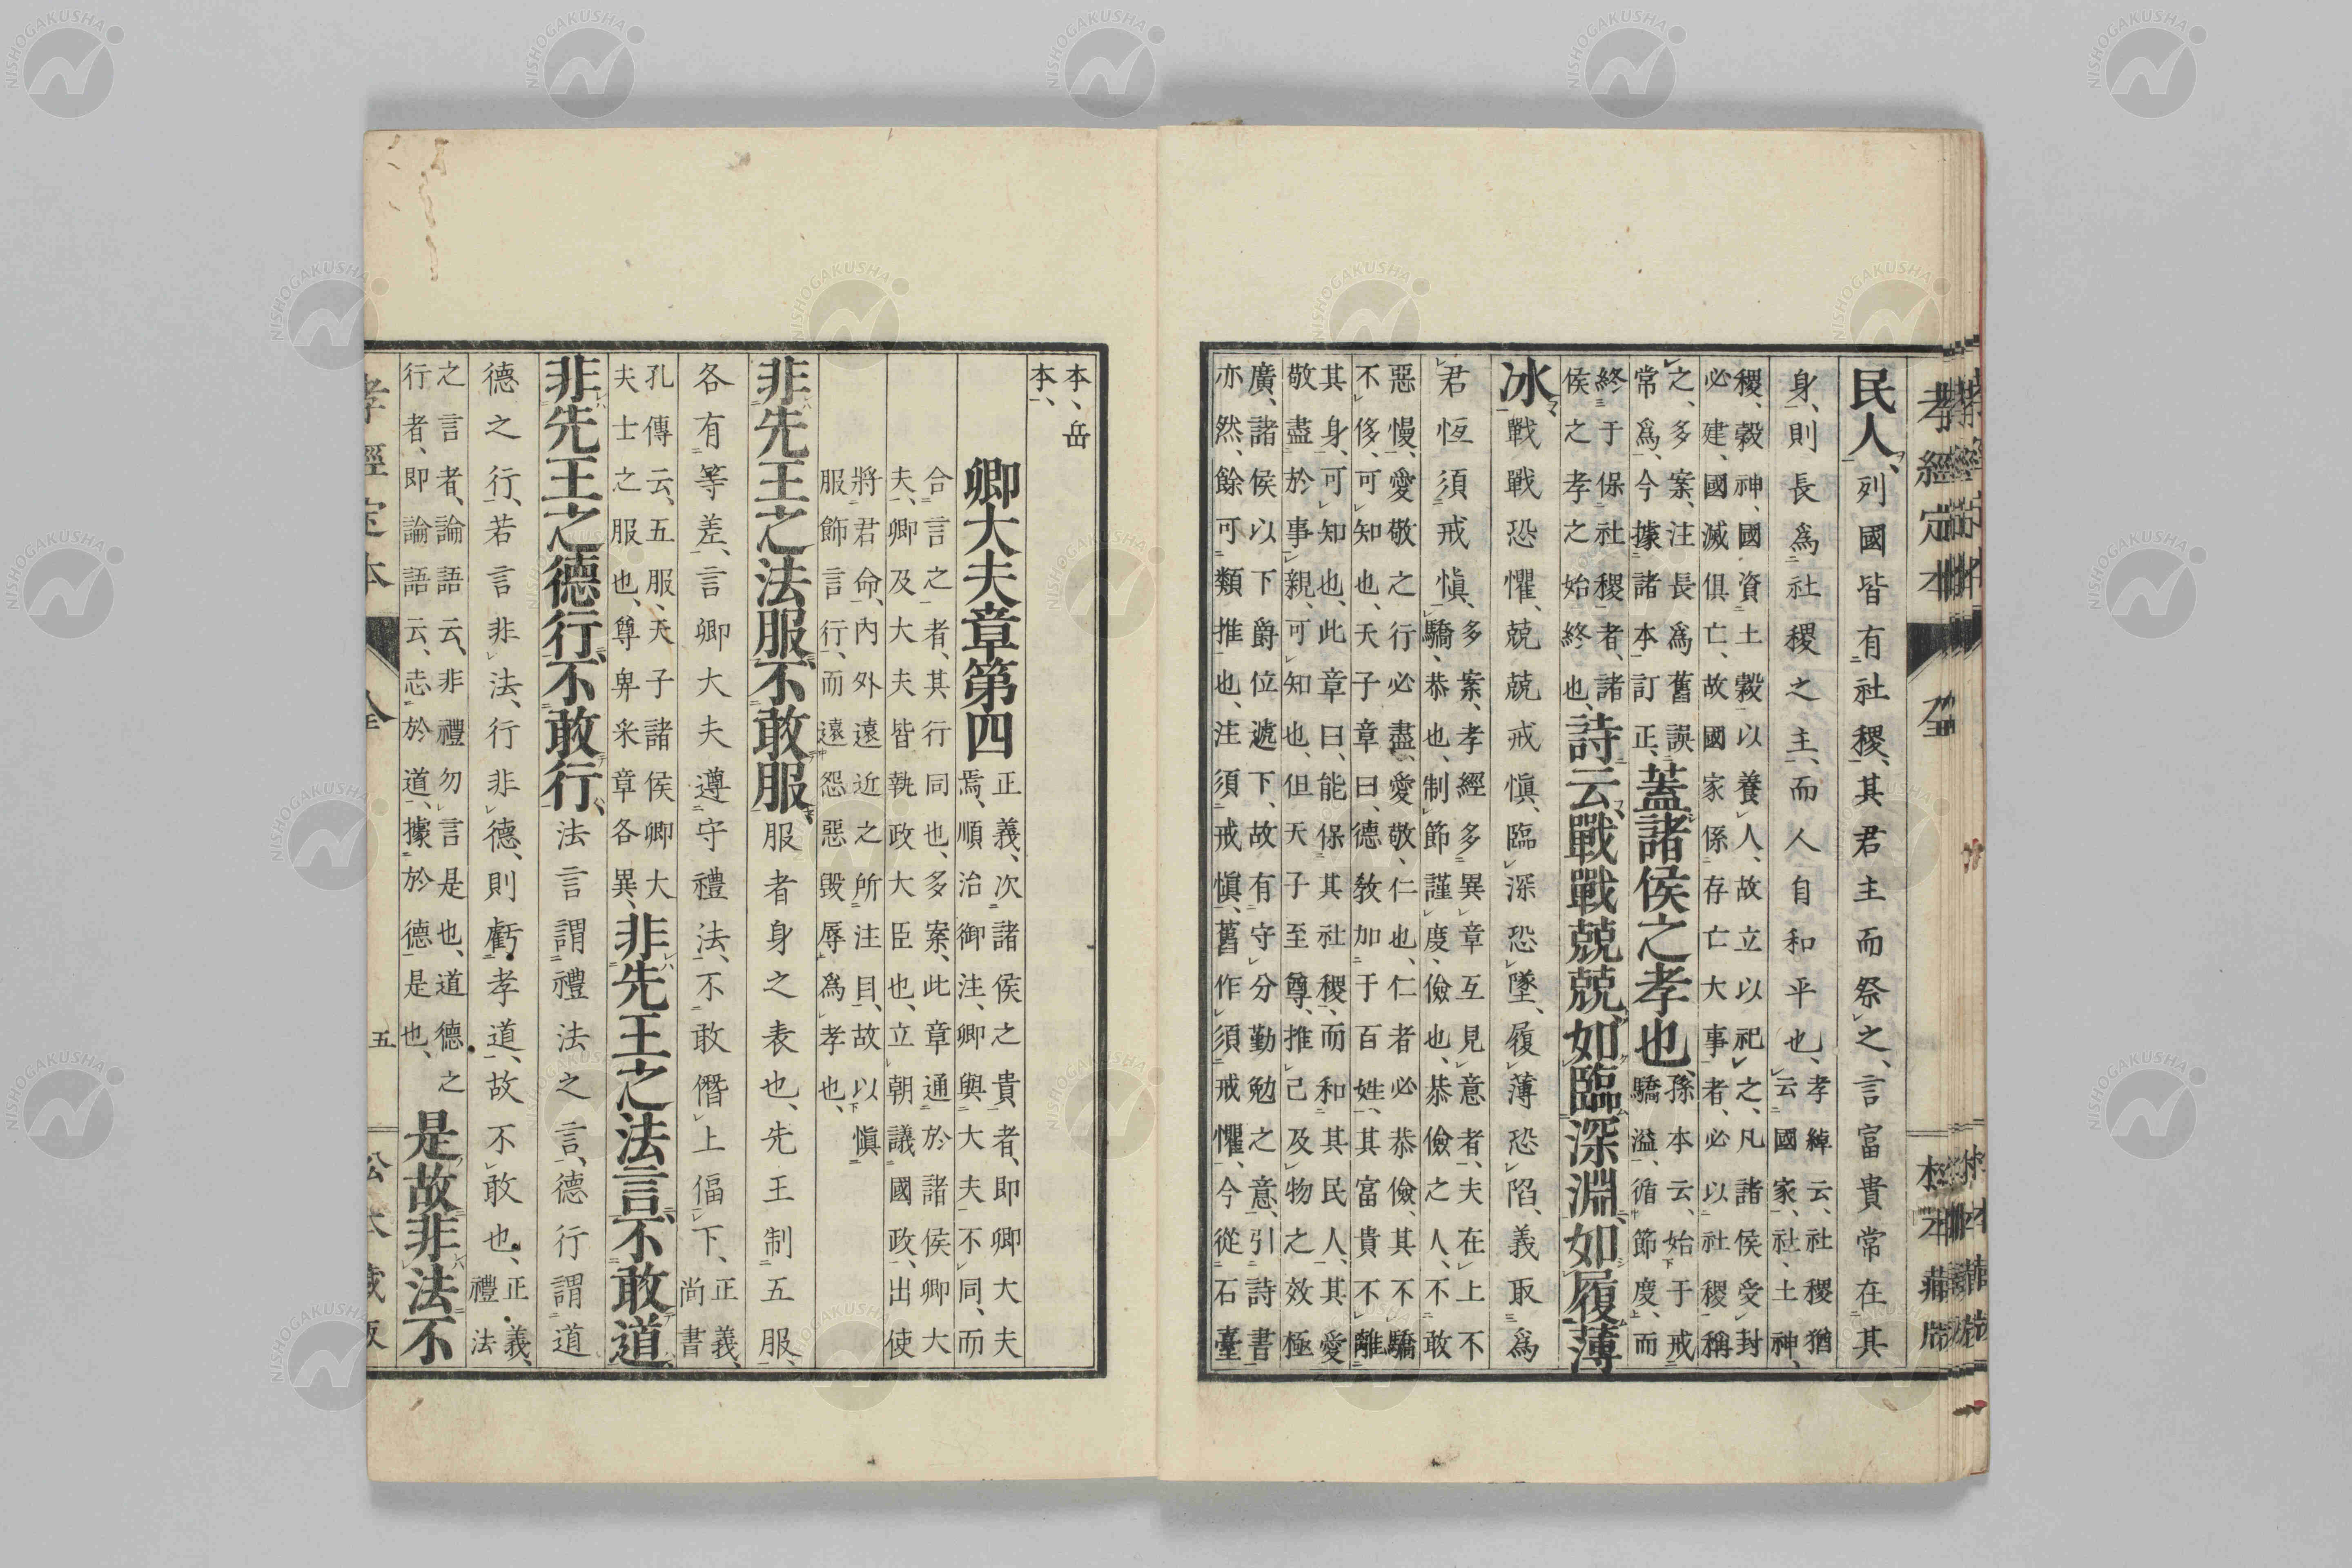 民人、列國皆有社稷、其君主而祭之、言富貴常在其
身、則長爲社稷之主、而人自和平也、孝綽云、社稷猶
云國家、社、土神、
稷、穀神、國資土穀以養人、故立以祀之、凡諸侯受封
必建、國滅俱亡、故國家係存亡大事者、必以社稷稱
之、多案、注長爲舊誤
常爲、今據諸本訂正、蓋諸侯之孝也、孫本云、始于戒
驕溢、循節度、而
終于保社稷者、諸
侯之孝之始終也、詩云、戰戰兢兢、如臨深淵、如履薄
冰、戰戰恐懼、兢兢戒愼、臨深恐墜、履薄恐陷、義取爲
君恆須戒愼、多案、孝經多異章互見意者、夫在上不
驕、恭也、制節謹度、儉也、恭儉之人、不敢
惡慢、愛敬之行必盡、愛敬、仁也、仁者必恭儉、其不驕
不侈、可知也、天子章曰、德敎加于百姓、其富貴不離
其身、可知也、此章曰、能保其社稷、而和其民人、其愛
敬盡於事親、可知也、但天子至尊、推己及物之效極
廣、諸侯以下爵位遞下、故有守分勤勉之意、引詩書
亦然、餘可類推也、注須戒愼、舊作須戒懼、今從石臺
本、岳
本、
卿大夫章第四 正義、次諸侯之貴者、即卿大夫
焉、順治御注、卿與大夫不同、而
合言之者、其行同也、多案、此章通於諸侯卿大
夫、卿及大夫皆執政大臣也、立朝議國政、出使
將君命、內外遠近之所注目、故以愼
服飾言行、而遠怨惡毀辱爲孝也、
非先王之法服、不敢服、服者身之表也、先王制五服、
各有等差、言卿大夫遵守禮法、不敢僭上偪下、正義、
尚書
孔傳云、五服、天子諸侯卿大
夫士之服也、尊卑采章各異、非先王之法言、不敢道、
非先王之德行、不敢行、法言謂禮法之言、德行謂道
德之行、若言非法、行非德、則虧孝道、故不敢也、正義、
禮法
之言者、論語云、非禮勿言是也、道德之
行者、即論語云、志於道、據於德是也、是故非法不
孝經定本 全
松本藏版
五
NISHOGAKUSHA